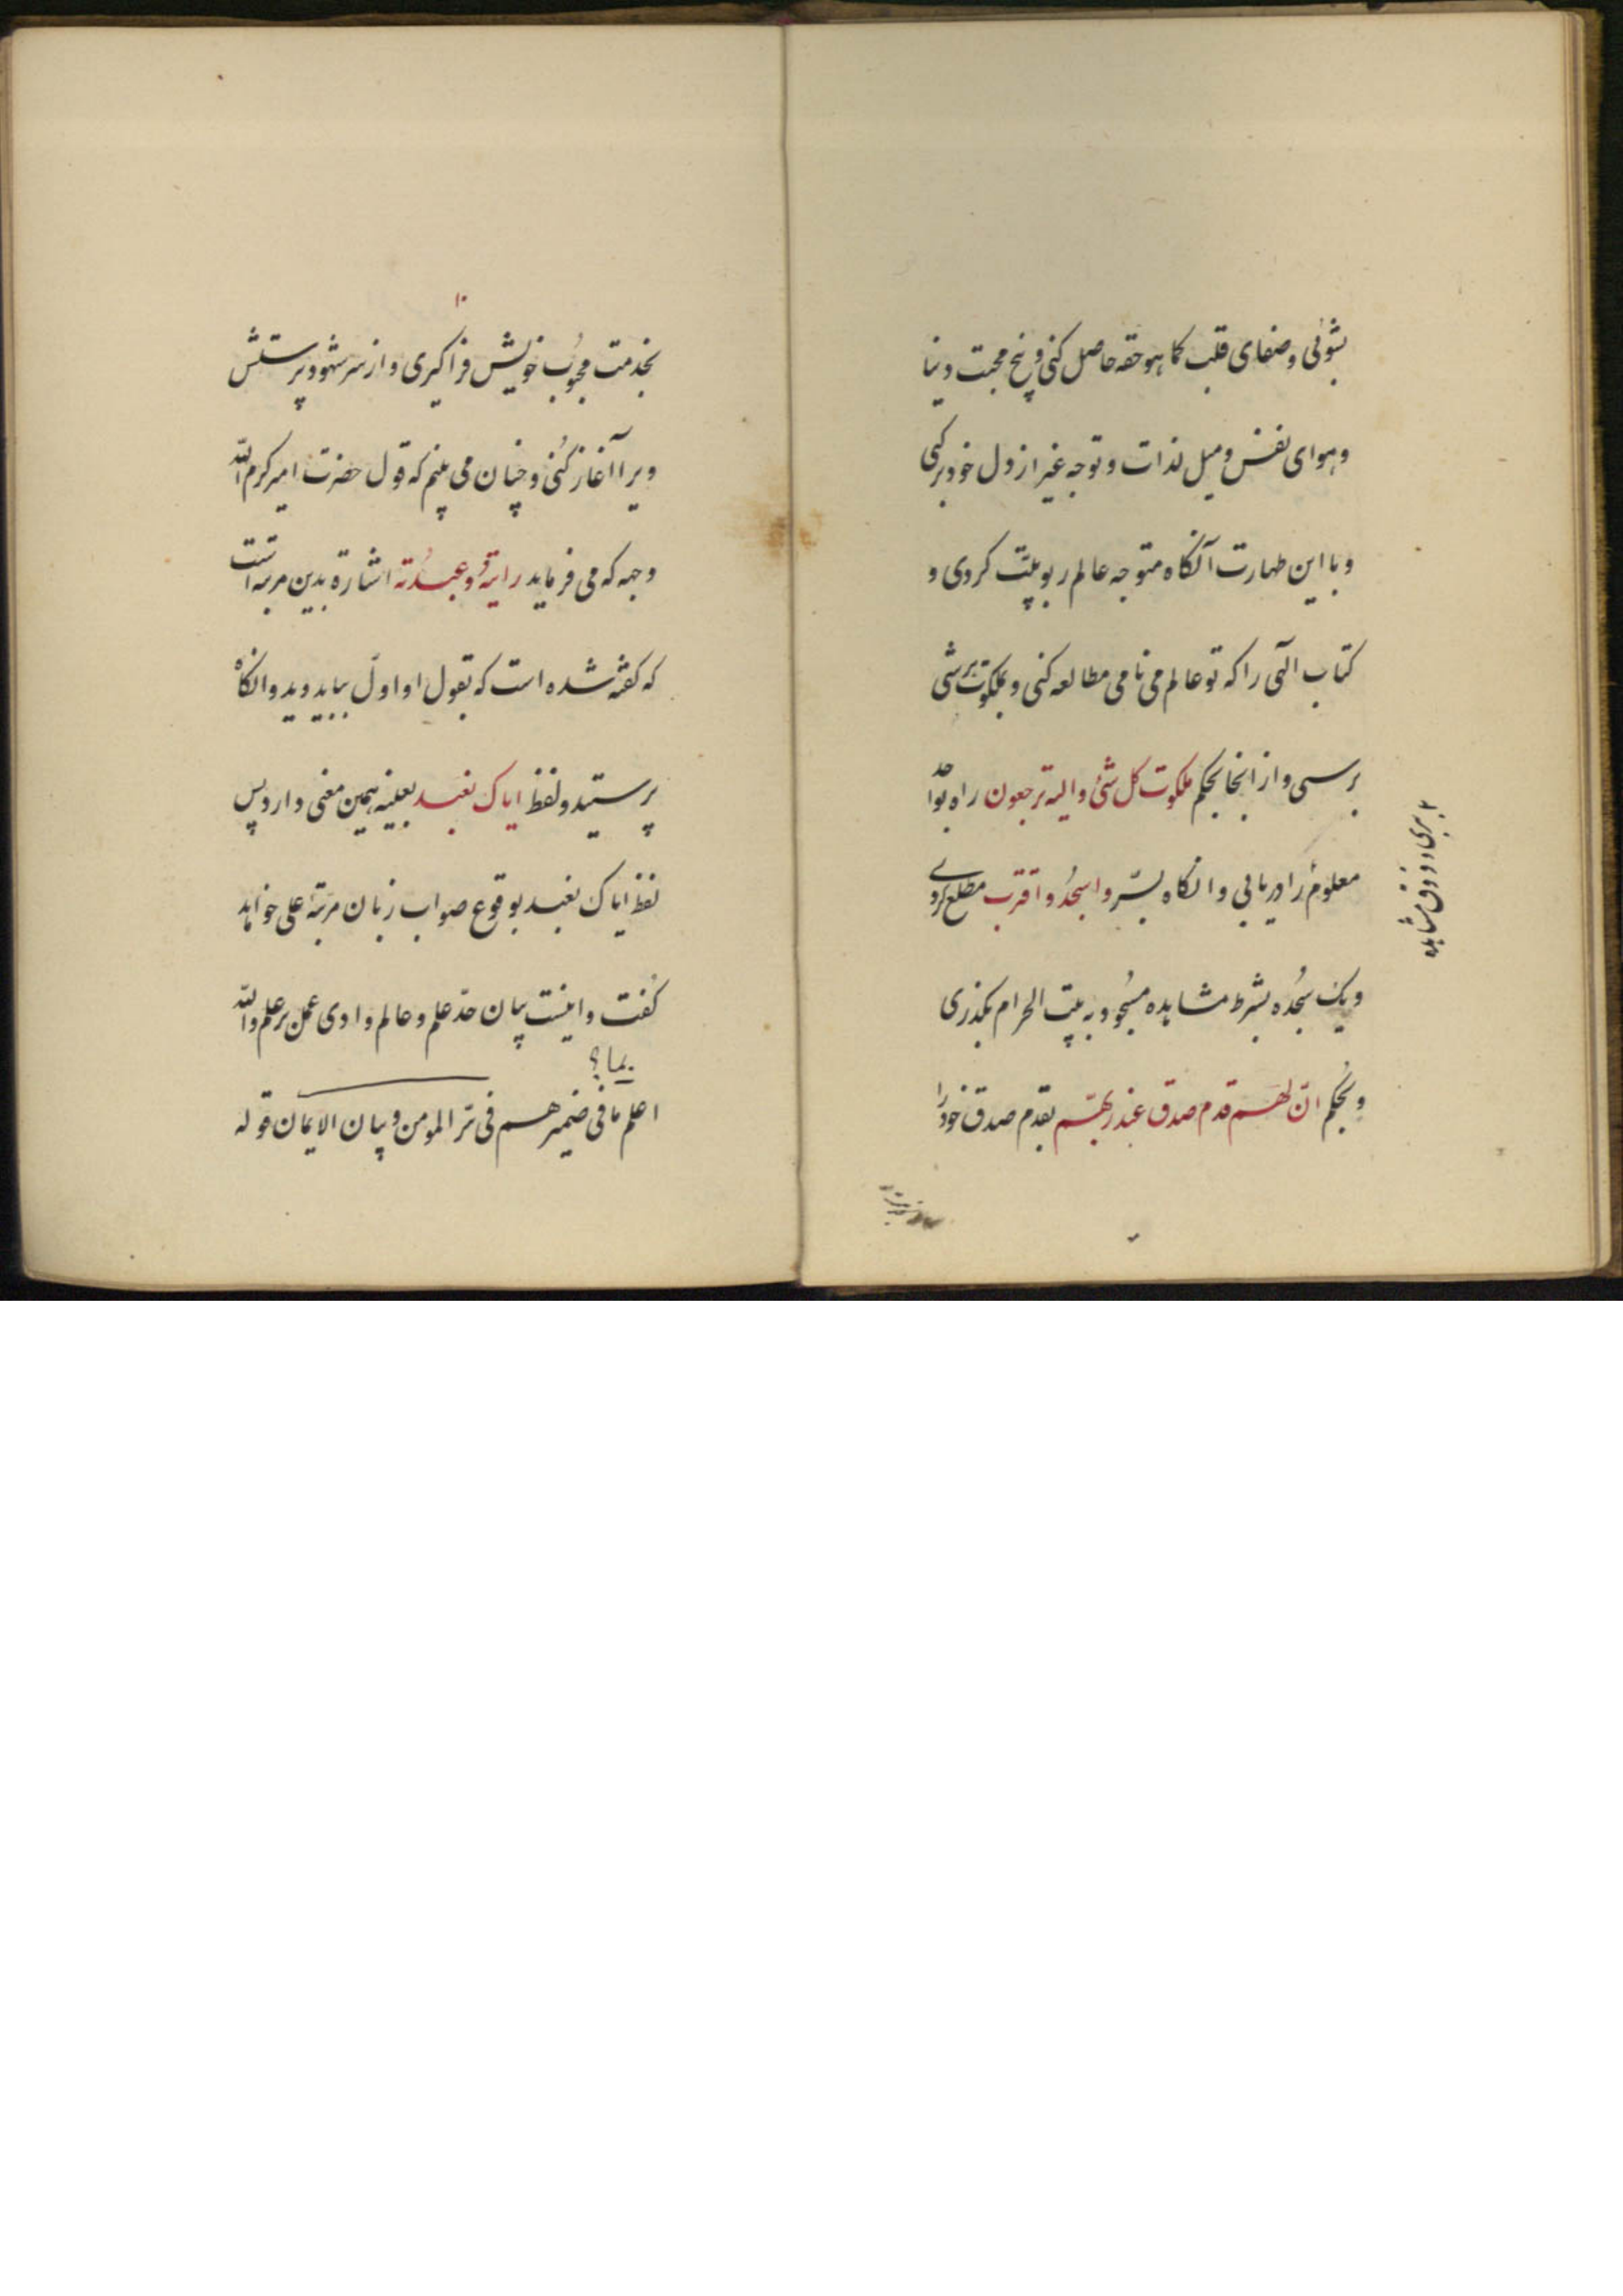 بشوئی وصفای قلب کما هو حقه حاصل کنی و بیخ محبت دنیا
و هوای نفس و میل لذات و توجه غیر از دل خود برکنی
و با این طهارت آنکاه متوجه عالم ربوبیت کردی و
کتاب الهی را که تو عالم می نامی مطالعه کنی و بملکوت هر شی
برسی و از انجا بحکم ملکوت کل شئ والیه ترجعون راه بواحد
معلوم را دریابی و انکاه بسّر واسجُد واقترب مطلع کردی
ویک سجُده بشرط مشاهده مسجُود به بیت الحرام بکذری
و بحکم انّ لهم قدم صدق عند ربهّم بقدم صدق خود را
بری و ذوق مشاهده
۱۰
بخدمت محبُوب خویش فرا کیری و از سر شهود پرستش
ویرا آغاز کُنی و چنان می بینم که قول حضرت امیر کرم الله
وجهه که می فرماید رایتهُ وعبدُته اشارة بدین مرتبه است
که کفته شده است که بقول او اوّل بباید دید و انکاه
پرستید و لفظ ایاک نعبد بعینه همین معنی دارد پس
لفظ ایاک نعبد بوقوع صواب زبان مرتبهٔ علی خواهد
کفت و اینست بیان حدّ علم و عالم وادی عمل بر علم والله
بما؟
اعلم ما فی ضمیرهم فی سّر المومن و بیان الایمان قوله